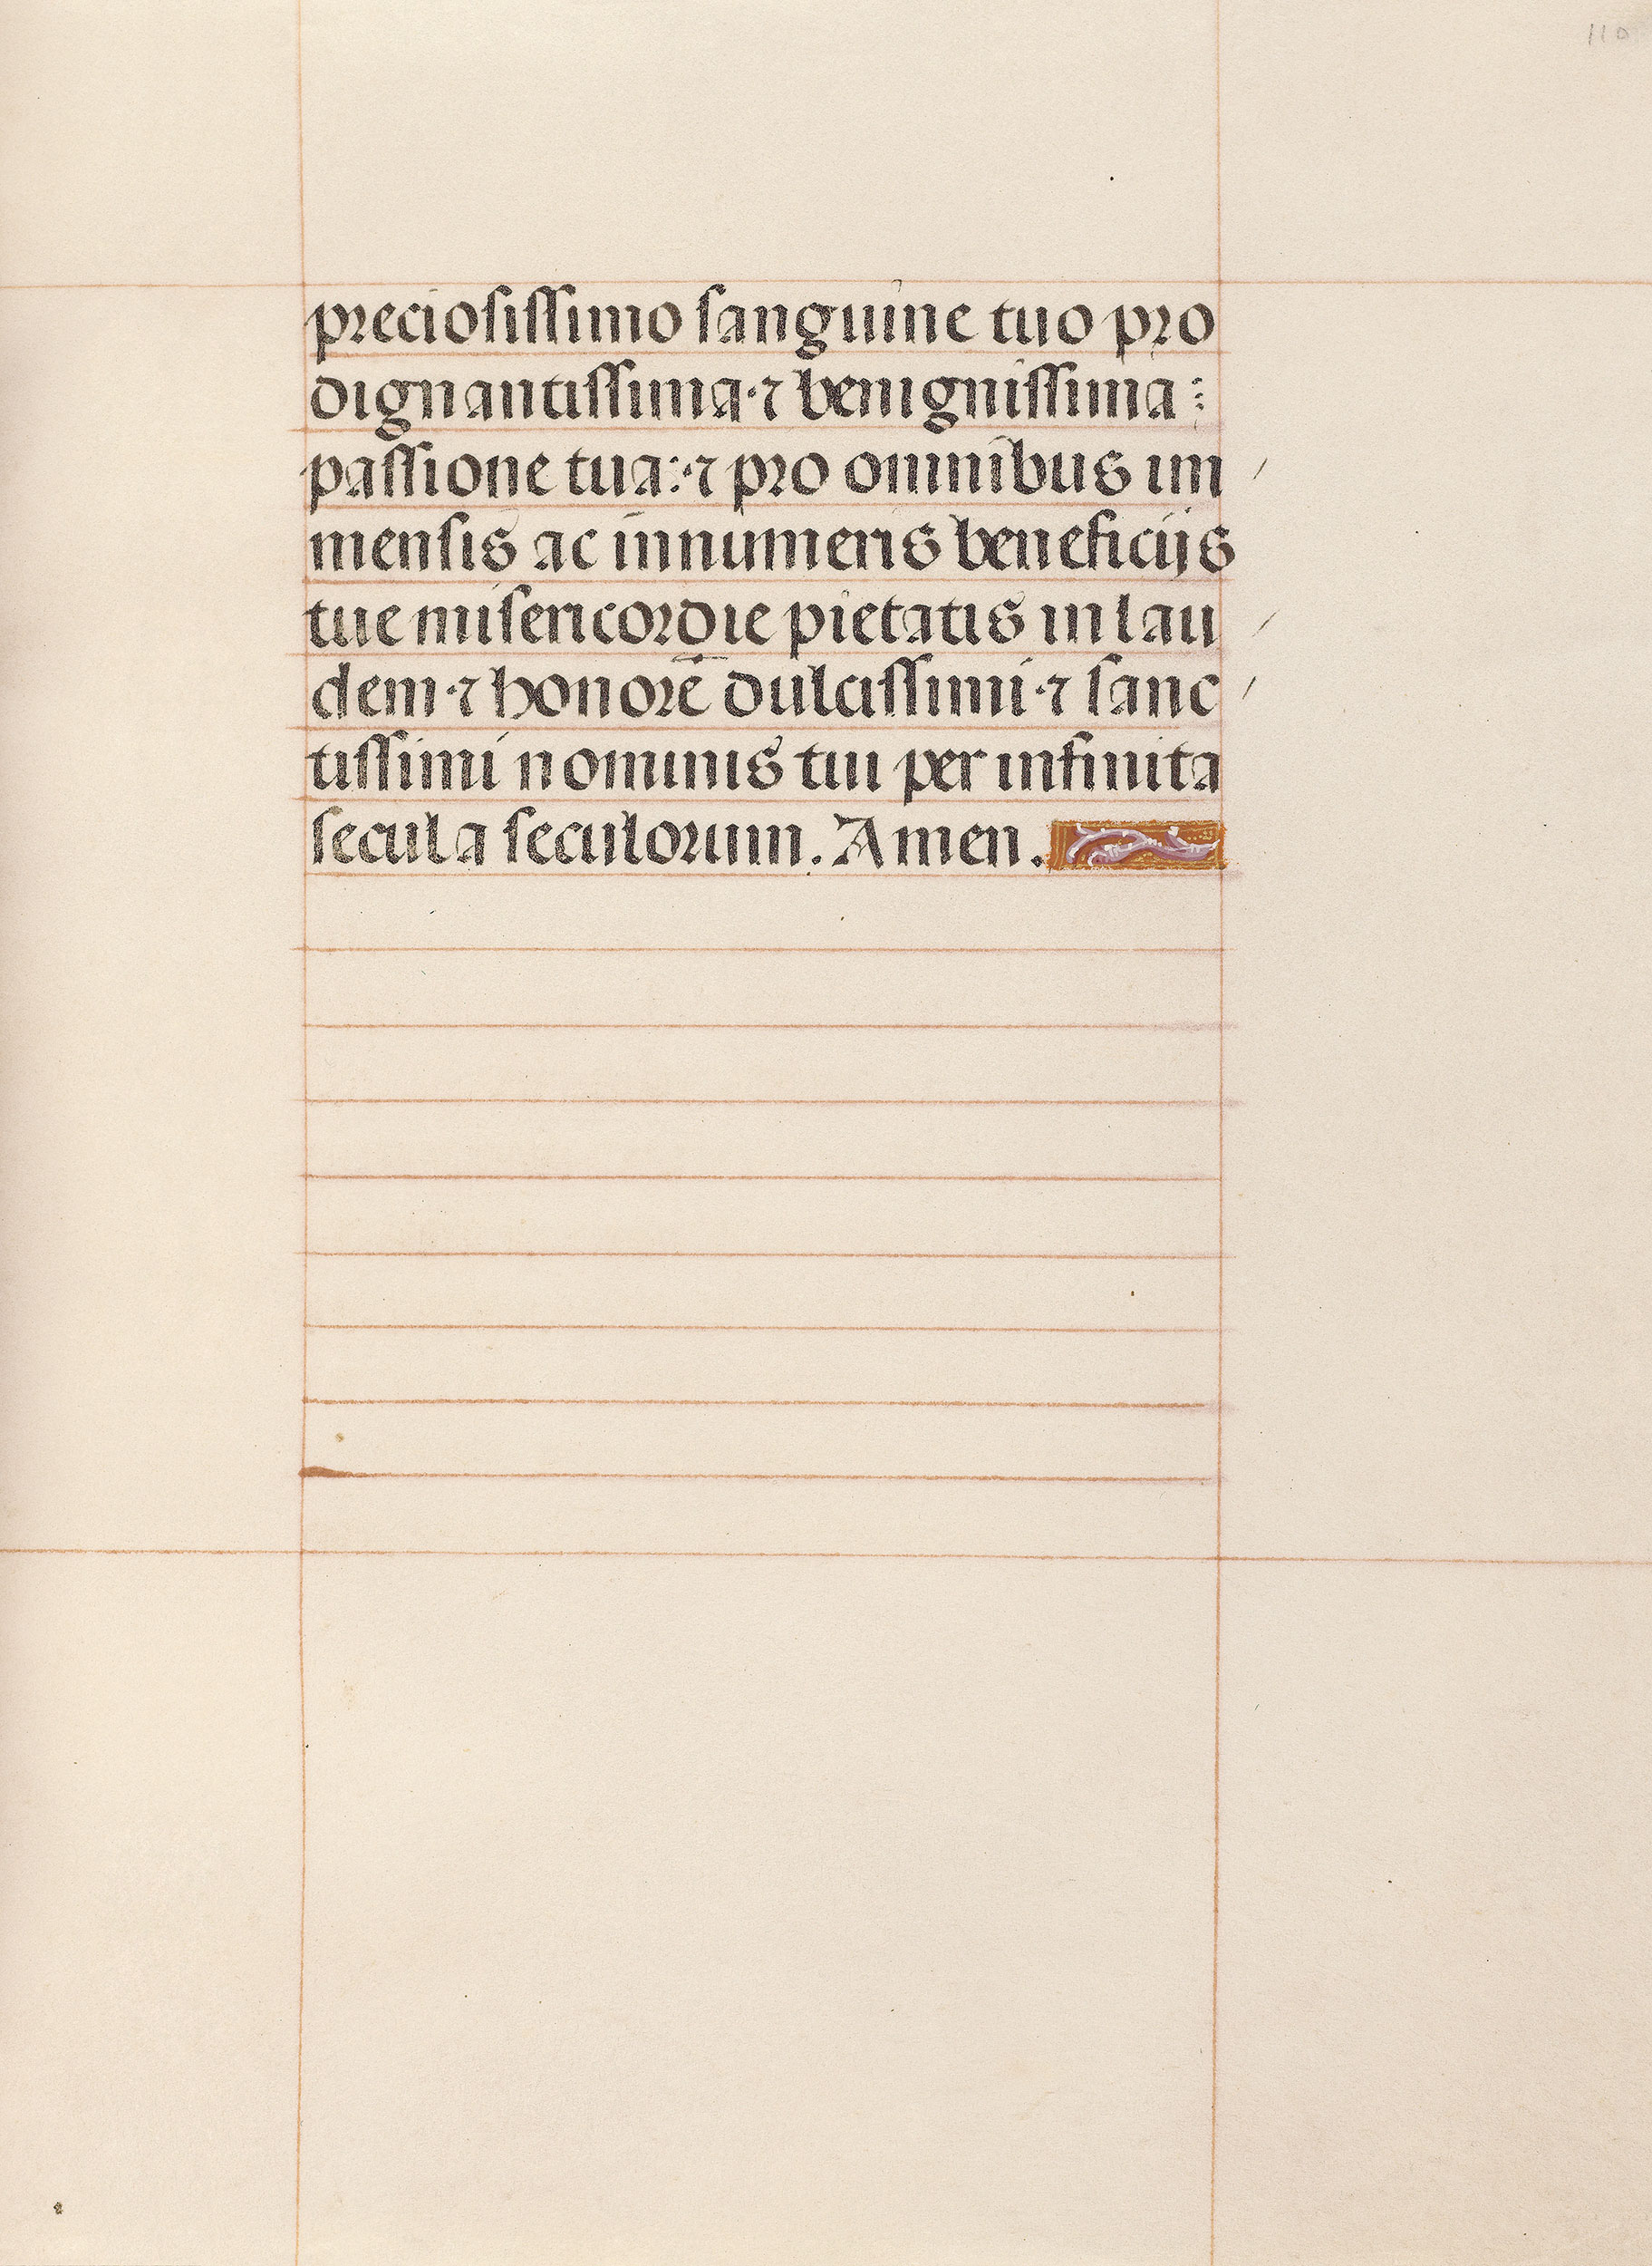 110
preciosissimo sanguine tuo pro
dignantissima·⁊ benignissima :
passione tua:·⁊ pro omnibus im /
mensis ac innumeris beneficijs
tue misericordie pietatis in lau /
dem·⁊ honorē dulcissimi·⁊ sanc /
tissimi nominis tui per infinita
secula seculorum. Amen.